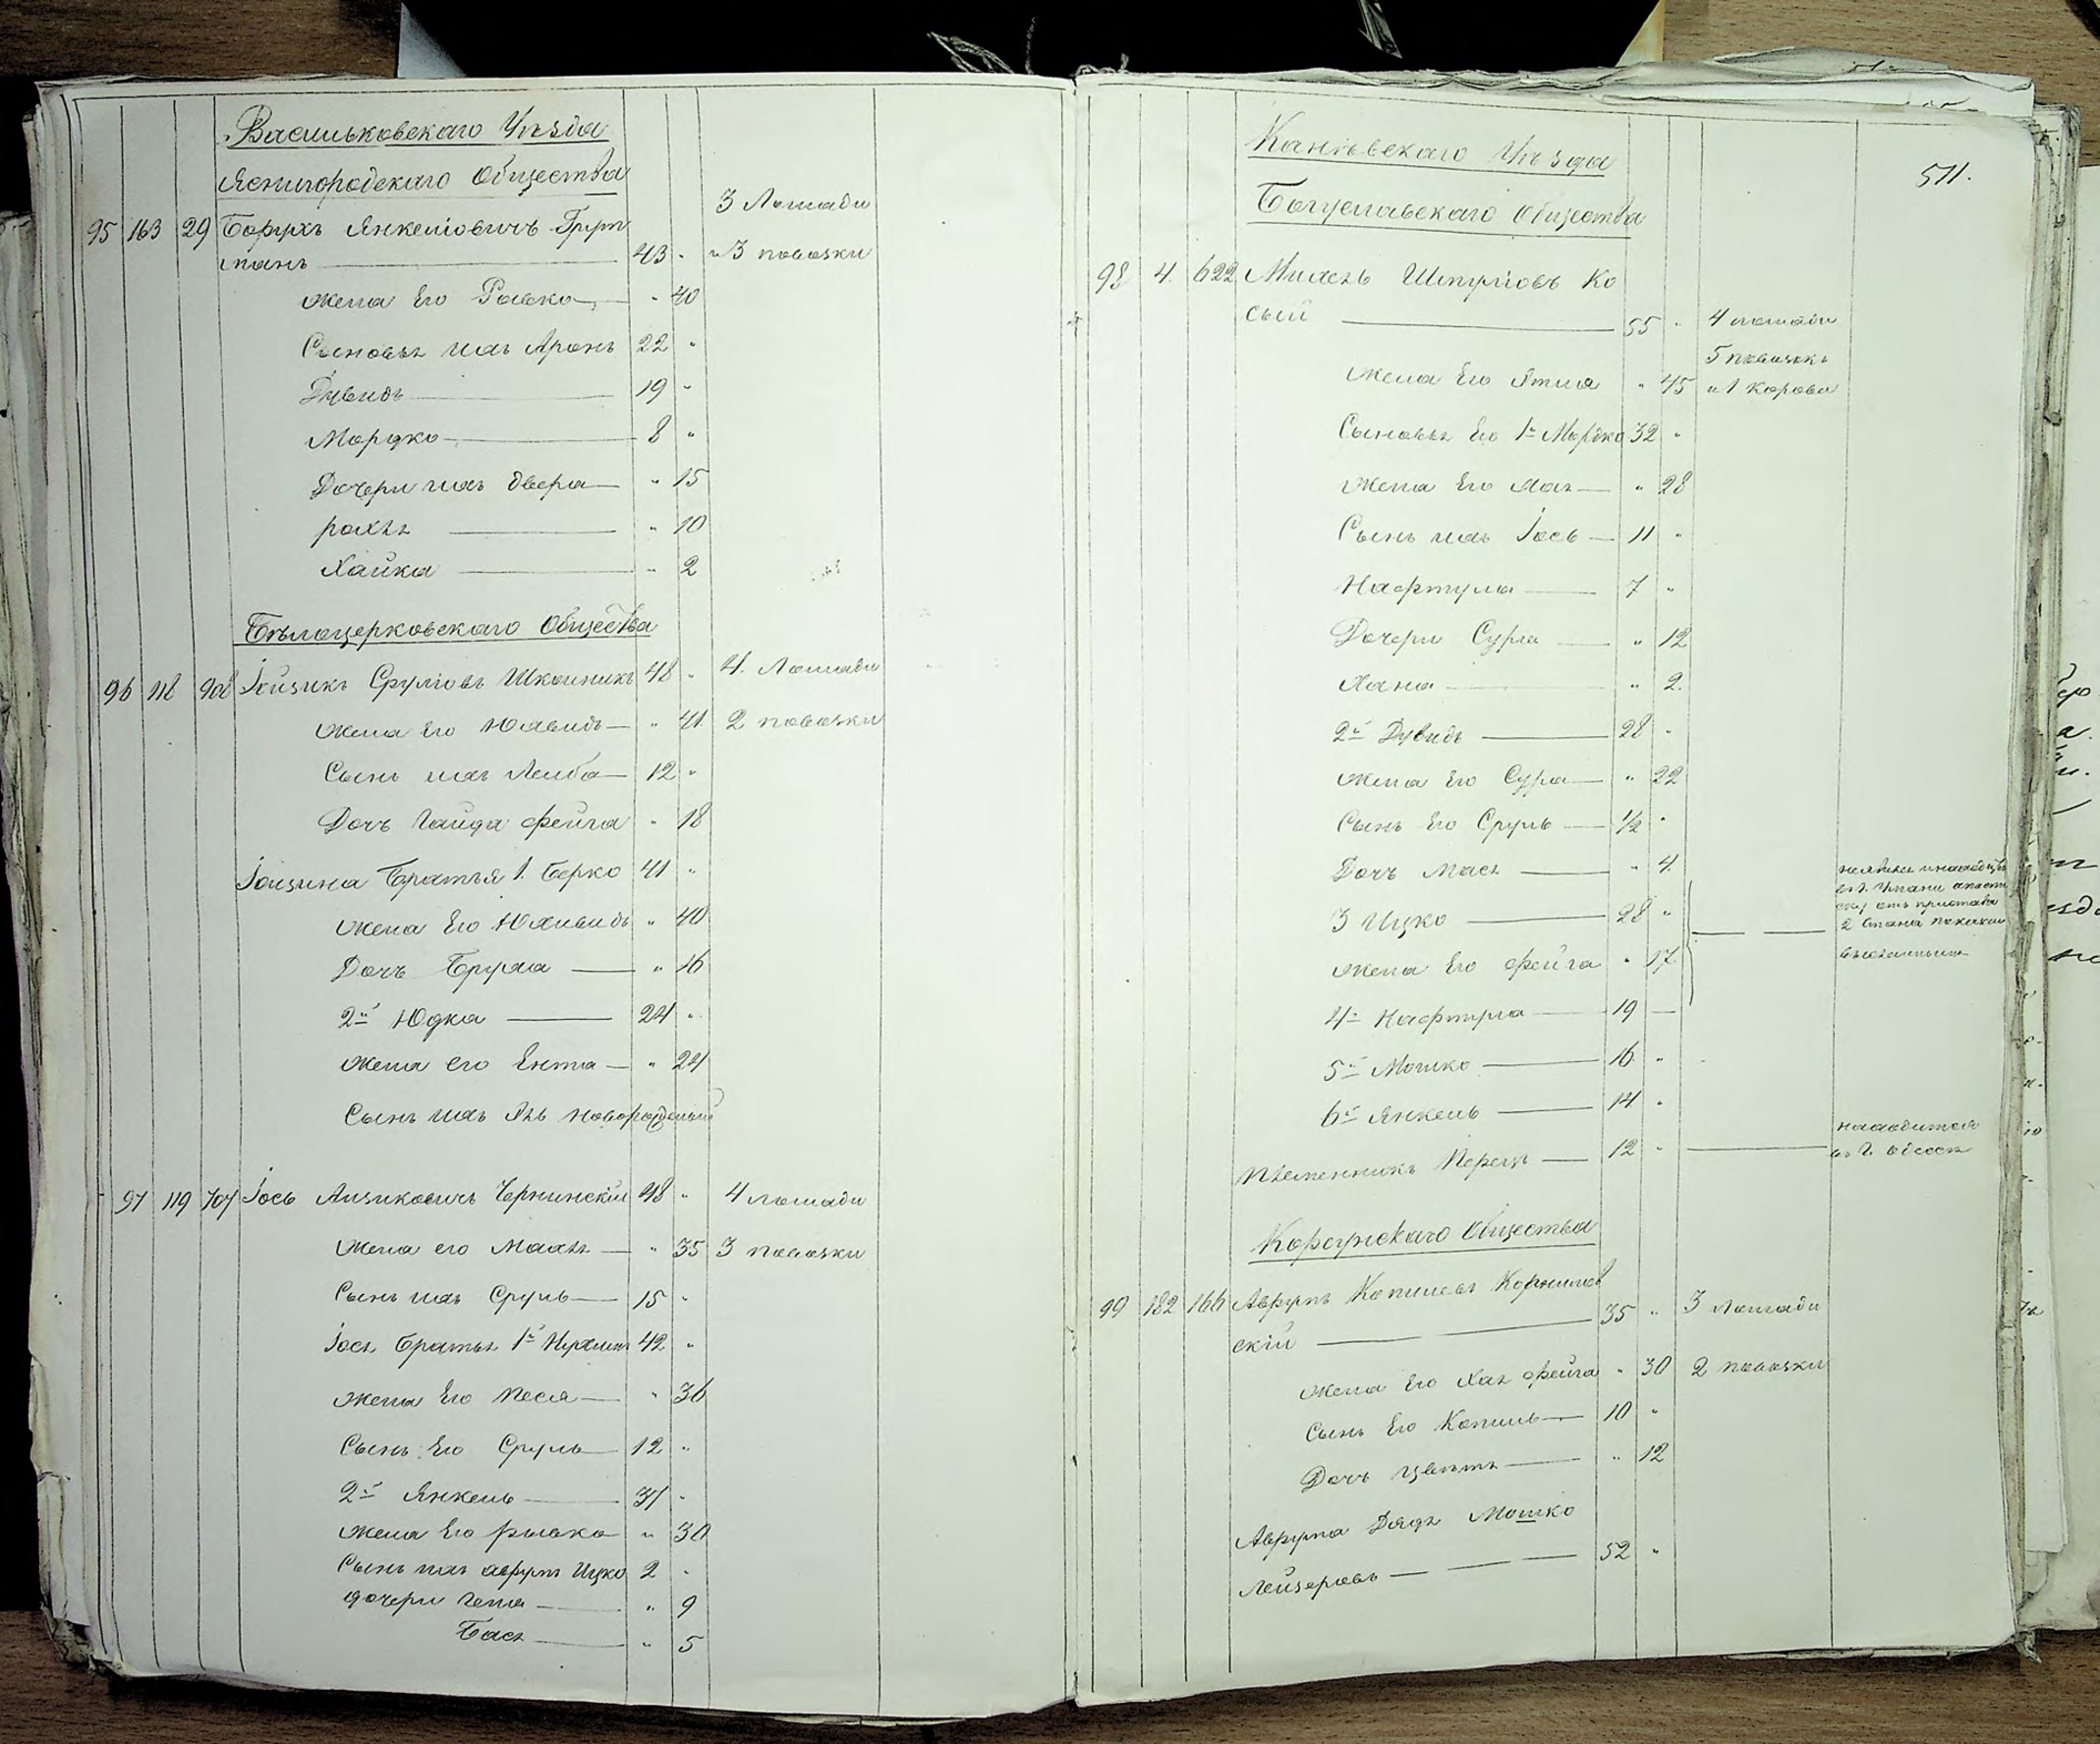 Васильковскаго Уѣзда
Ясногородскаго Общества
95 163 29 Борухъ Янкеліовичъ Грут
манъ 43 " 3 Лошади
и 3 повозки
Жена Его Рывка " 40
Сыновья ихъ Аронъ 22 "
Дувидъ 19 "
Мордко 8 "
Дочери ихъ Двера " 15
рахль " 10
Хайка " 2
Бѣлоцерковскаго Общества
96 118 908 Іойзикъ Сруліовъ Школникъ 48 " 4 Лошади
Жена Его Юхвидъ " 41 2 повозки
Сынъ ихъ Лейба 12 "
Дочь Гайда Фейга " 18
Іойзика Братья 1. Берко 41 "
Жена Его Юхивидъ " 40
Дочь Бруха " 16
2й Юдка 24 "
Жена его Ента " 24
Сынъ ихъ новорожденый
97 119 707 Іось Айзиковичъ 48 " 4 лошади
Жена его Махля " 35 3 повозки
Сынъ ихъ Сруль 15 "
Іося Братья 1й Нухимъ 42 "
Жена Его Песя " 36
Сынъ Его Сруль 12 "
2й Янкель 31 "
Жена Его рывка " 30
Сынъ ихъ аврумъ Ицко 2 "
дочери Гепа " 9
Бася " 5
511.
Каневскаго Уѣзда
Богуславскаго Общества
98 4. 622 Михель Шмуліовъ Ко
сый 55 " 4 лошади
5 повозкъ
Жена Его Этля " 45 и 1 корова
Сыновья Его 1й Мордко 32 "
Жена Его Хая " 28
Сынъ ихъ Іось 11 "
Нафтула 7 "
Дочери Сура " 12
Хана " 2.
2й Дувидъ 28 "
Жена Его Сура " 22
Сынъ Его Сруль 1/2 "
Дочь Мася " 4
3 Ицко 28 "
Жена Его Фейга " 17
4й Нафтула 19 —
5й Мошко 16 "
6й Янкель 14 "
Племенникъ Перецъ 12 " находится
въ Г. Одессѣ
Корсунскаго Общества
99 182 166 Аврумъ Копилевъ Корнилов
скій 35 " 3 лошади
Жена Его Хая Фейга " 30 2 повозки
Сынъ Его Копиль 10 "
Дочь Цвѣтъ " 12
Аврума Дядя Мошко
Лейзеровъ 52 "